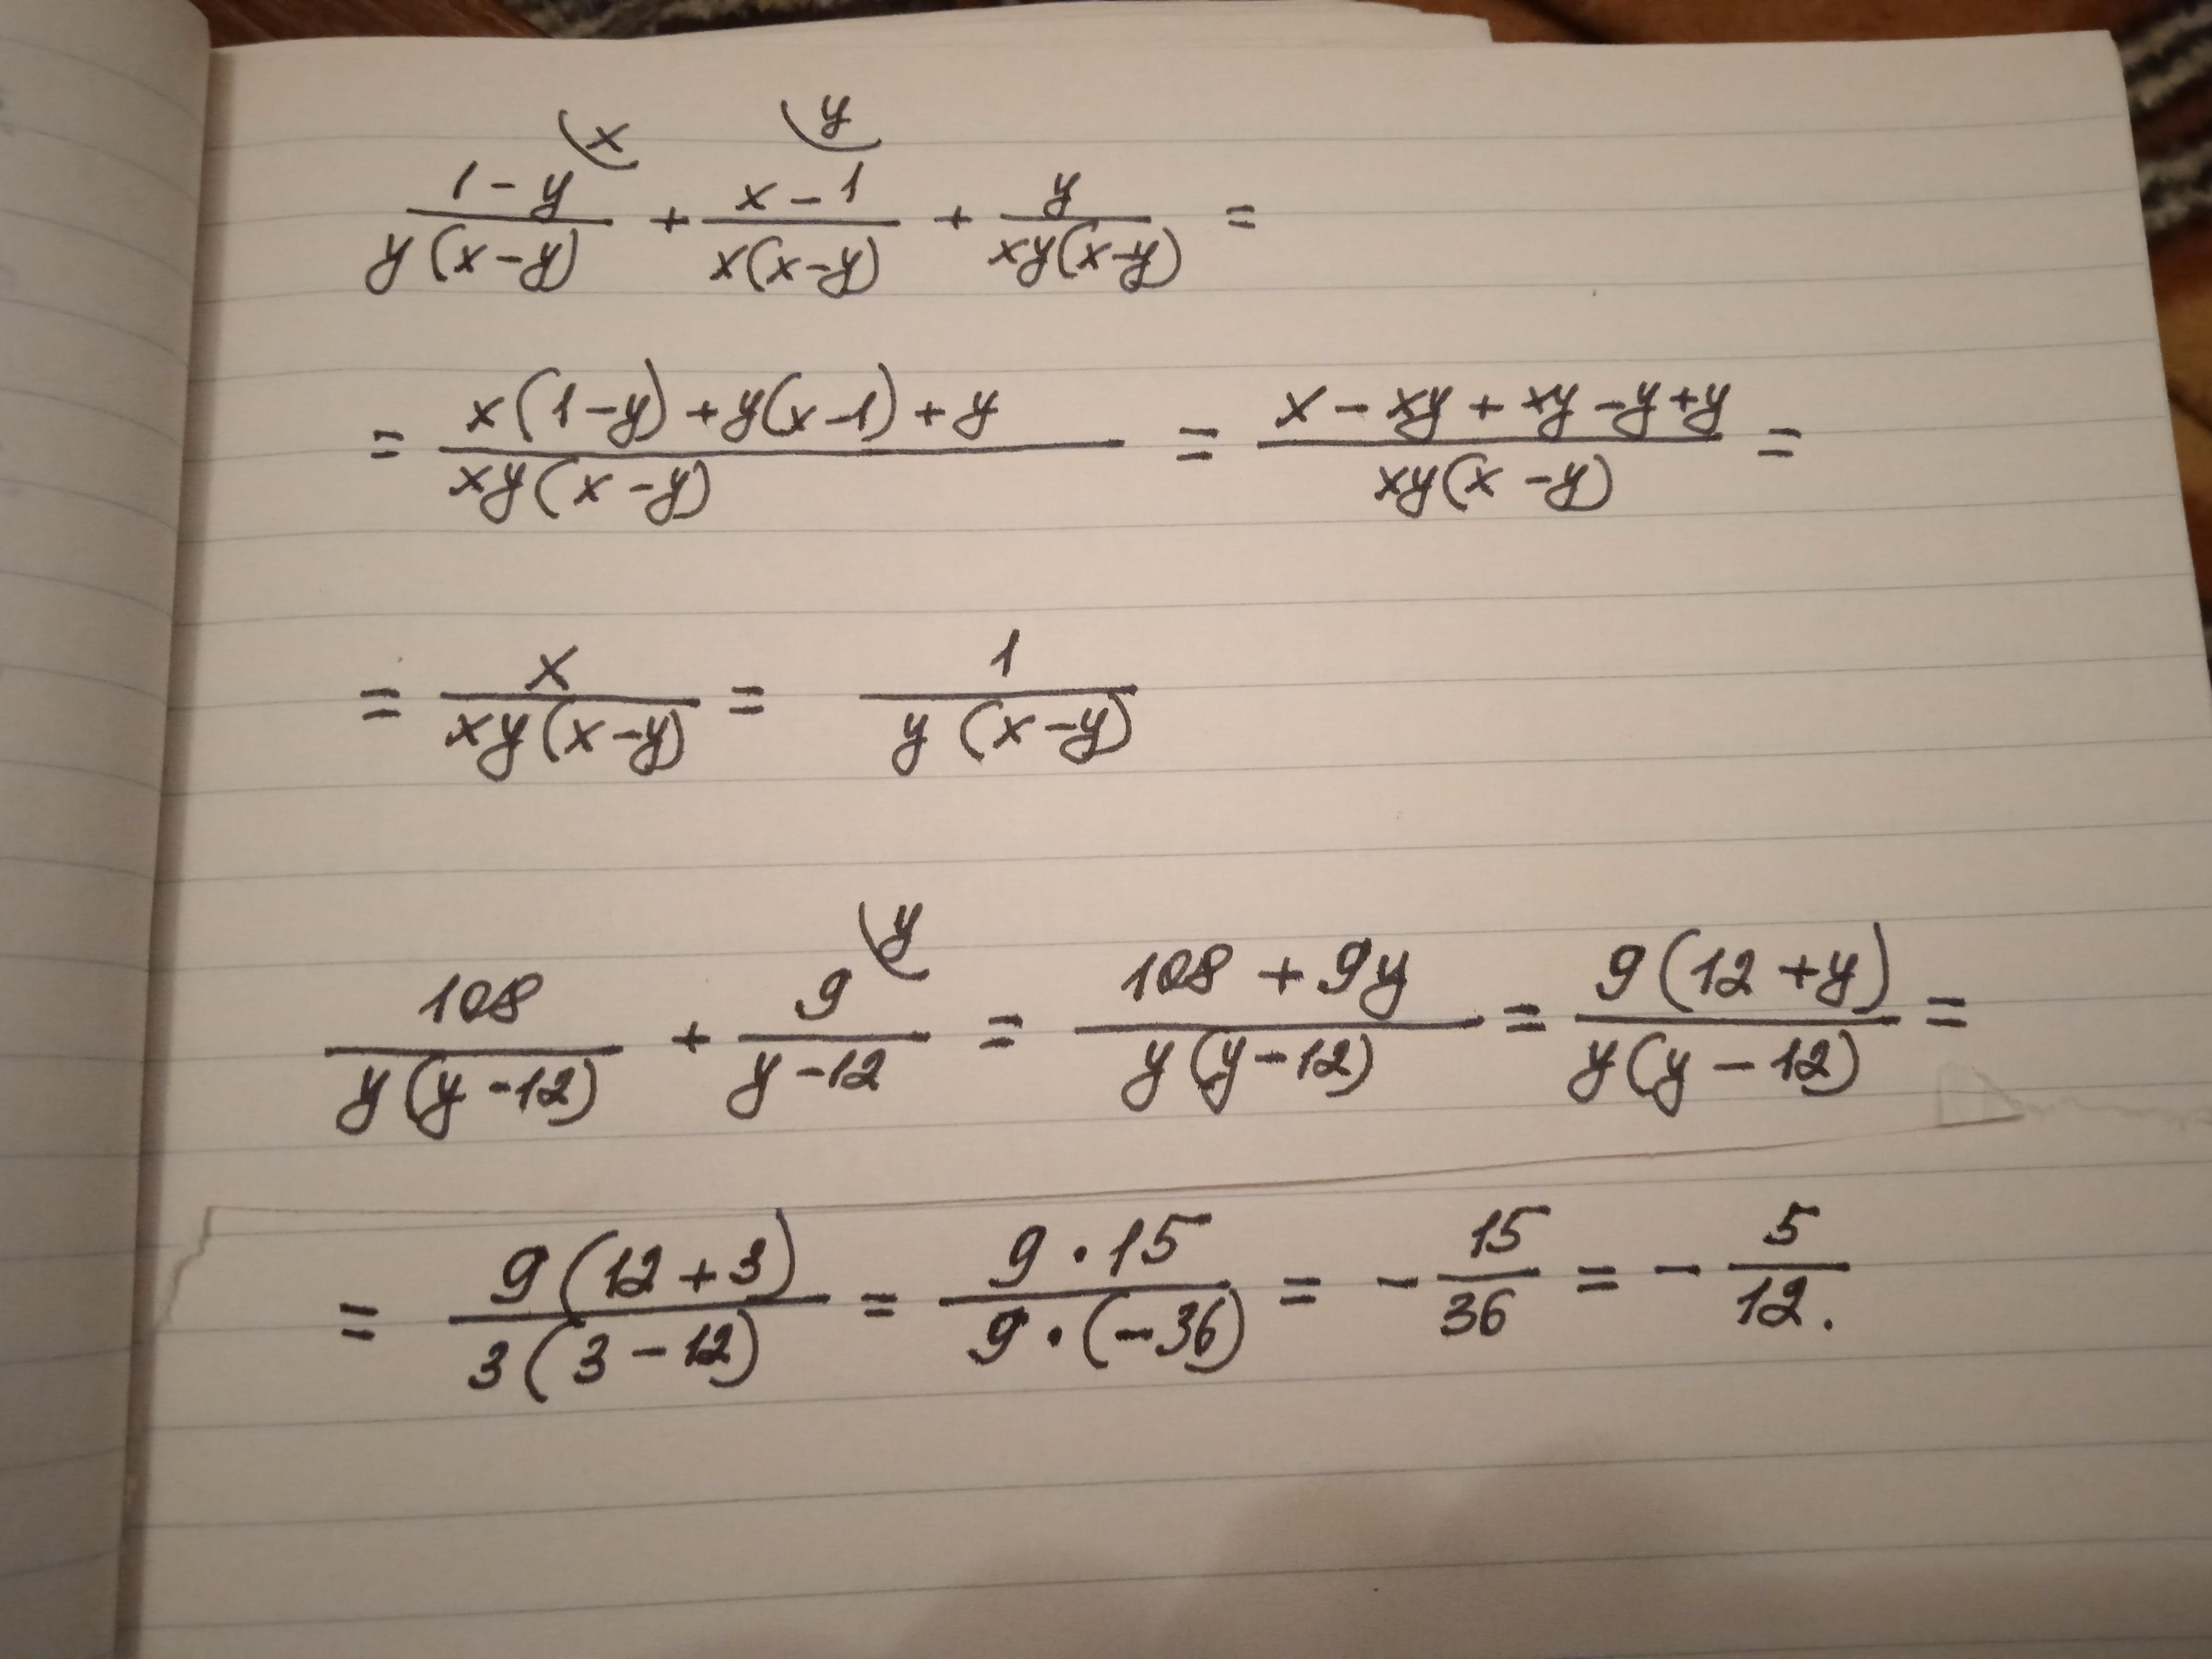 x y
(1-y)/(y(x-y)) + (x-1)/(x(x-y)) + y/(xy(x-y)) =
= (x(1-y)+y(x-1)+y)/(xy(x-y)) = (x-xy+xy-y+y)/(xy(x-y)) =
= x/(xy(x-y)) = 1/(y(x-y))
y
108/(y(y-12)) + 9/(y-12) = (108+9y)/(y(y-12)) = (9(12+y))/(y(y-12)) =
= (9(12+3))/(3(3-12)) = (9·15)/(9·(-36)) = -15/36 = -5/12.